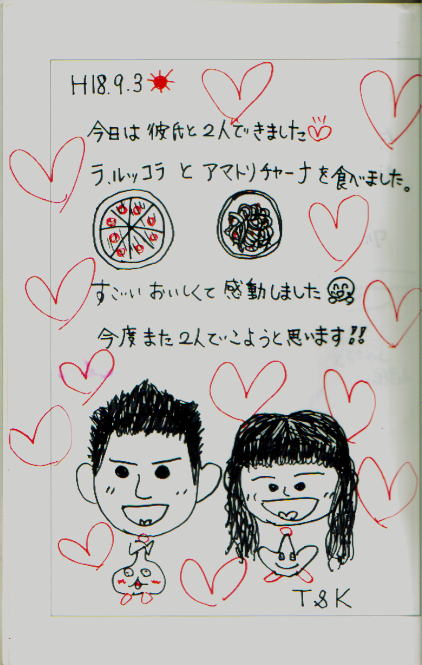 H18.9.3
今日は彼氏と2人できました
ラ、ルッコラ と アマトリチャーナを食べました。
すごいおいしくて感動しました
今度また2人でこようと思います!!
T&K